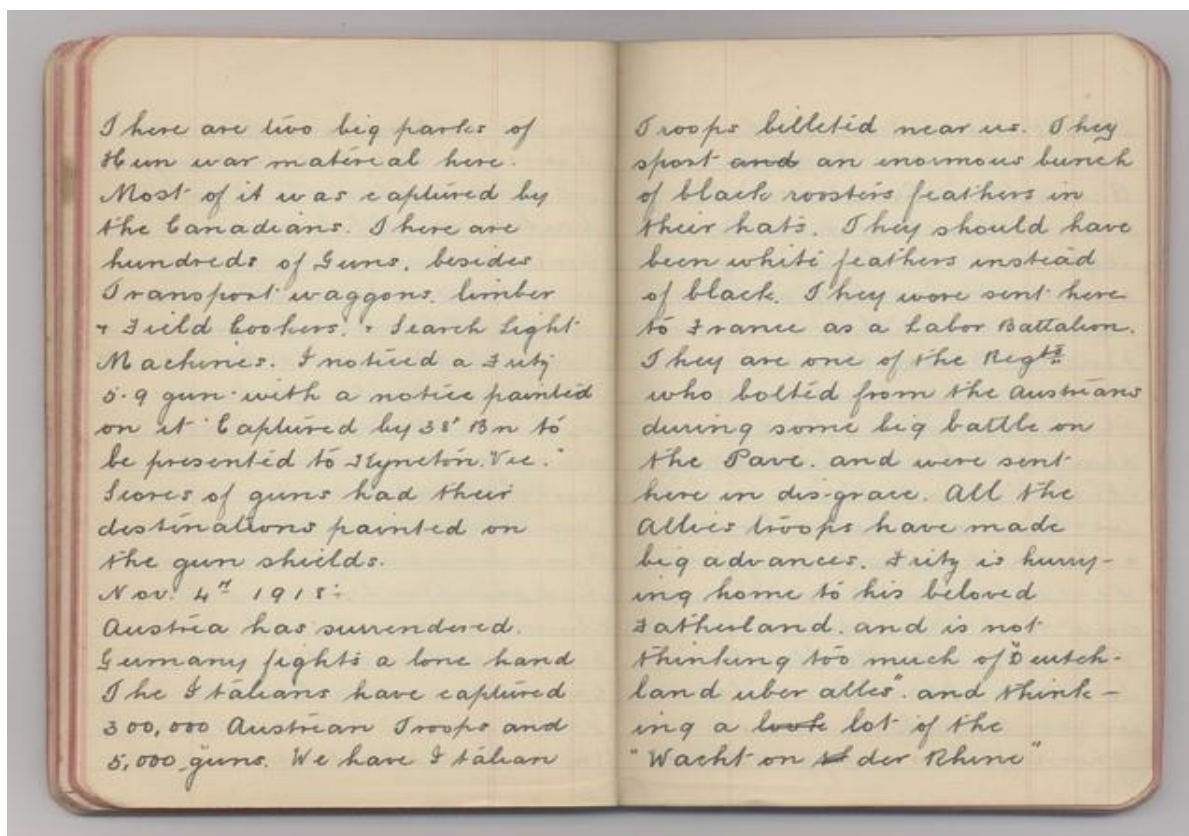 There are two big parks of
Hun war material here.
Most of it was captured by
the Canadians. There are
hundreds of Guns, besides
Transport waggons, limber
+ Field Cookers, + Search Light
Machines. I noticed a Fritz
5.9 gun with a notice painted
on it "Captured by 38th Bn to
be presented to Kyneton. Vic."
Scores of guns had their
destinations painted on
the gun shields.
Nov. 4th 1918:
Austria has surrendered.
Germany fights a lone hand
The Italians have captured
300,000 Austrian Troops and
5,000 guns. We have Italian
Troops billeted near us. They
sport and an enormous bunch
of black roosters feathers in
their hats. They should have
been white feathers instead
of black. They were sent here
to France as a Labor Battalion.
They are one of the Regts
who bolted from the Austrians
during some big battle on
the Pave. and were sent
here in dis-grace. All the
Allies troops have made
big advances. Fritz is hurry-
ing home to his beloved
Fatherland. and is not
thinking too much of "Deutch-
land uber alles". and think-
ing a look lot of the
"Wacht on der Rhine"